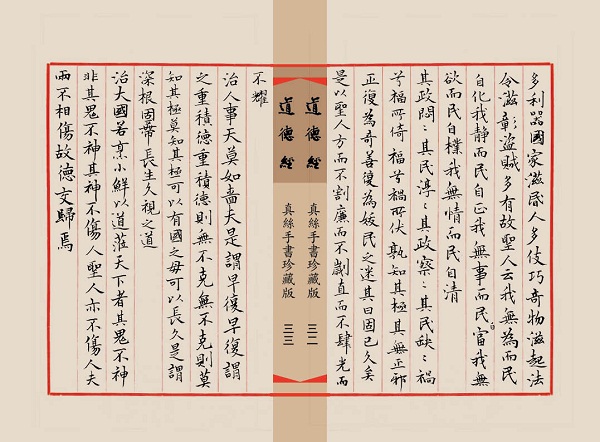 多利器國家滋昏人多伎巧奇物滋起法
令滋彰盜賊多有故聖人云我無為而民
自化我静而民自正我無事而民富我無
欲而民自樸我無情而民自清
其政悶〻其民淳〻其政察〻其民缺〻禍
兮福所倚福兮禍所伏孰知其極其無正邪
正復為奇善復為妖民之迷其日固已久矣
是以聖人方而不割廉而不劌直而不肆光而
道德經 真絲手書珍藏版 三二
道德經 真絲手書珍藏版 三三
不耀
治人事天莫如嗇夫是謂早復早復謂
之重積德重積德則無不克無不克則莫
知其極莫知其極可以有國之母可以長久是謂
深根固蒂長生久視之道
治大國若烹小鮮以道蒞天下者其鬼不神
非其鬼不神其神不傷人聖人亦不傷人夫
兩不相傷故德交歸焉